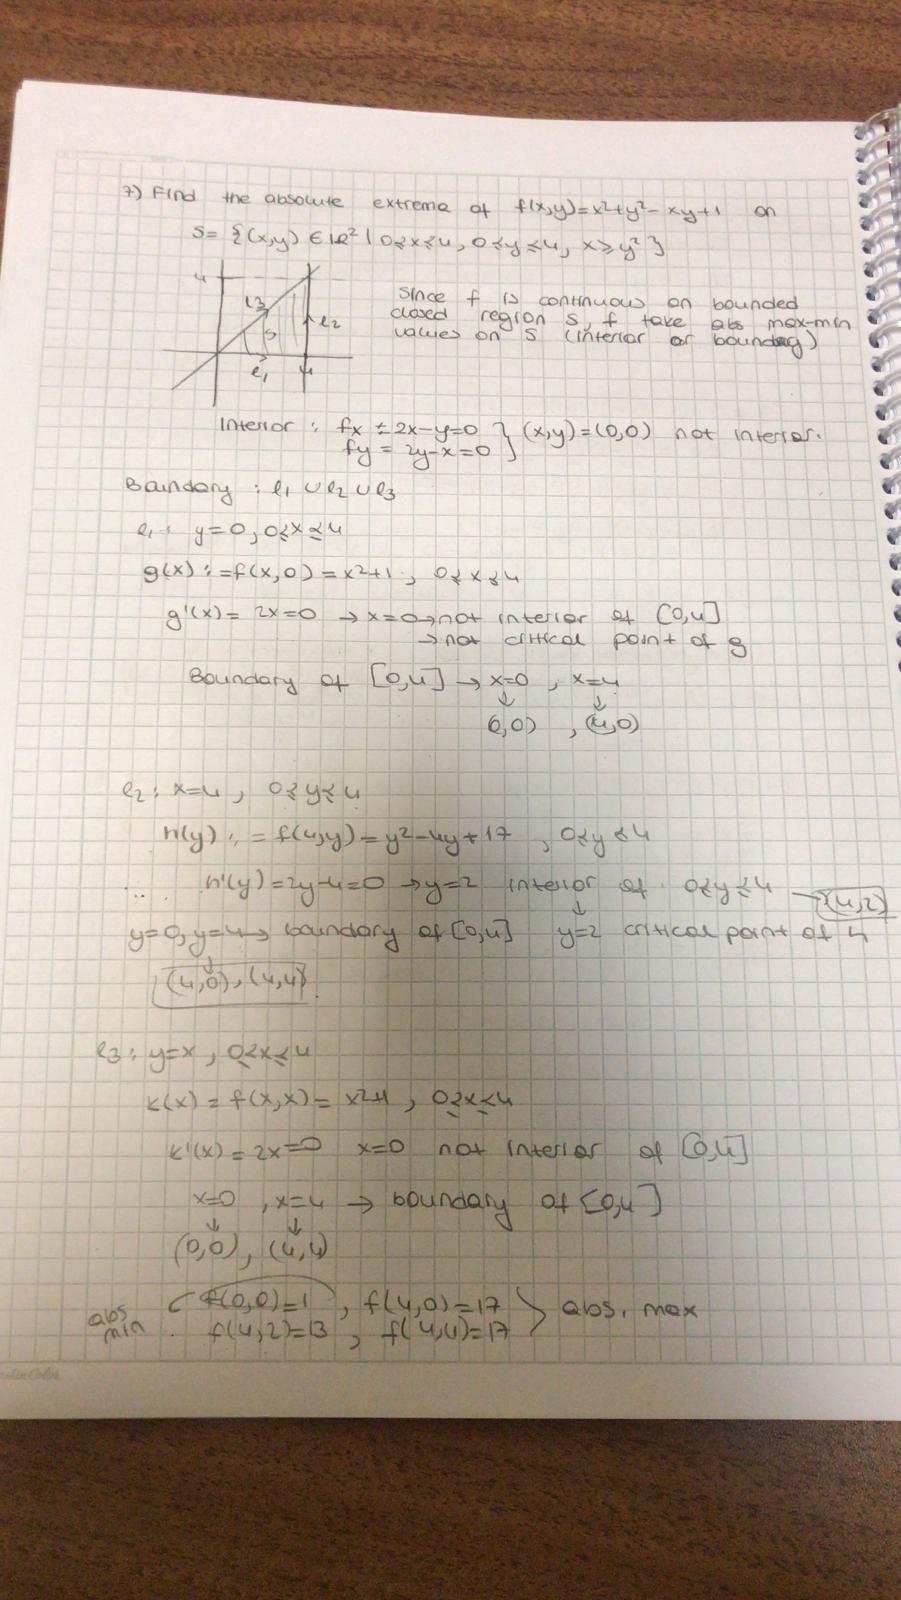 7) Find the absolute extrema of f(x,y)=x²+y²-xy+1 on
S= {(x,y) ∈ IR² | 0≤x≤4, 0≤y≤4, x≥y² }
4
l3
S
l2
l1
4
Since f is continuous on bounded
closed region S, f take abs max-min
values on S (interior or boundary)
Interior : fx = 2x-y=0 } (x,y)=(0,0) not interior.
fy = 2y-x=0
Boundary : l1 ∪ l2 ∪ l3
l1 : y=0, 0≤x≤4
g(x) := f(x,0) = x²+1 , 0≤x≤4
g'(x) = 2x=0 → x=0 → not interior of [0,4]
→ not critical point of g
Boundary of [0,4] → x=0 , x=4
↓ ↓
(0,0) , (4,0)
l2 : x=4 , 0≤y≤4
h(y) := f(4,y) = y²-4y+17 , 0≤y≤4
h'(y) = 2y-4=0 → y=2 interior of 0≤y≤4 → (4,2)
↓
y=0, y=4 → boundary of [0,4] y=2 critical point of h
↓
(4,0), (4,4)
l3 : y=x , 0≤x≤4
k(x) = f(x,x) = x²+1 , 0≤x≤4
k'(x) = 2x=0 x=0 not interior of [0,4]
x=0 , x=4 → boundary of [0,4]
↓ ↓
(0,0) , (4,4)
abs min f(0,0)=1 , f(4,0)=17 } abs. max
f(4,2)=13 , f(4,4)=17